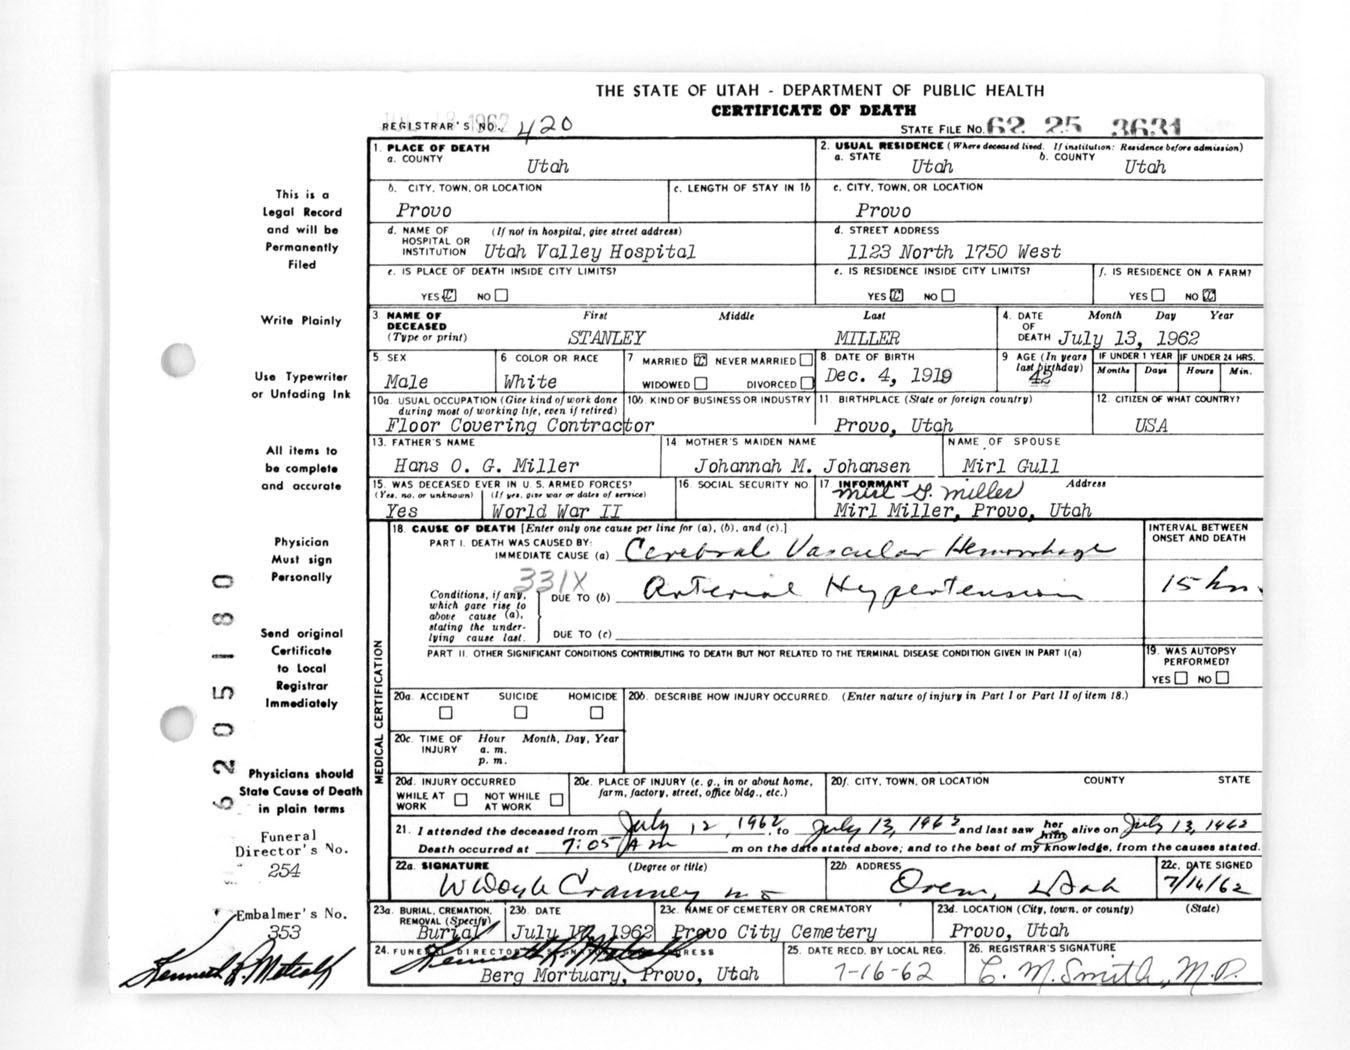 THE STATE OF UTAH - DEPARTMENT OF PUBLIC HEALTH
CERTIFICATE OF DEATH
REGISTRAR'S NO. 420
STATE FILE NO. 62 25 3631
1. PLACE OF DEATH
a. COUNTY
Utah
2. USUAL RESIDENCE (Where deceased lived. If institution: Residence before admission)
a. STATE Utah b. COUNTY Utah
b. CITY, TOWN, OR LOCATION
Provo
c. LENGTH OF STAY IN 1b
c. CITY, TOWN, OR LOCATION
Provo
d. NAME OF HOSPITAL OR INSTITUTION (If not in hospital, give street address)
Utah Valley Hospital
d. STREET ADDRESS
1123 North 1750 West
e. IS PLACE OF DEATH INSIDE CITY LIMITS?
YES NO
e. IS RESIDENCE INSIDE CITY LIMITS?
YES NO
f. IS RESIDENCE ON A FARM?
YES NO
3. NAME OF DECEASED (Type or print)
First Middle Last
STANLEY MILLER
4. DATE OF DEATH Month Day Year
July 13, 1962
5. SEX
Male
6 COLOR OR RACE
White
7 MARRIED NEVER MARRIED
WIDOWED DIVORCED
8. DATE OF BIRTH
Dec. 4, 1919
9 AGE (In years last birthday)
42
IF UNDER 1 YEAR
Months Days
IF UNDER 24 HRS.
Hours Min.
10a. USUAL OCCUPATION (Give kind of work done during most of working life, even if retired)
10b. KIND OF BUSINESS OR INDUSTRY
Floor Covering Contractor
11. BIRTHPLACE (State or foreign country)
Provo, Utah
12. CITIZEN OF WHAT COUNTRY?
USA
13. FATHER'S NAME
Hans O. G. Miller
14 MOTHER'S MAIDEN NAME
Johannah M. Johansen
NAME OF SPOUSE
Mirl Gull
15. WAS DECEASED EVER IN U.S. ARMED FORCES?
(Yes, no. or unknown) (If yes, give war or dates of service)
Yes World War II
16. SOCIAL SECURITY NO.
17 INFORMANT Address
Mirl G. Miller
Mirl Miller, Provo, Utah
18. CAUSE OF DEATH [Enter only one cause per line for (a), (b), and (c).]
INTERVAL BETWEEN ONSET AND DEATH
PART I. DEATH WAS CAUSED BY:
IMMEDIATE CAUSE (a) Cerebral Vascular Hemorrhage
331X
Conditions, if any, which gave rise to above cause (a), stating the underlying cause last.
DUE TO (b) Arterial Hypertension 15 hrs.
DUE TO (c)
PART II. OTHER SIGNIFICANT CONDITIONS CONTRIBUTING TO DEATH BUT NOT RELATED TO THE TERMINAL DISEASE CONDITION GIVEN IN PART I(a)
19. WAS AUTOPSY PERFORMED?
YES NO
20a. ACCIDENT SUICIDE HOMICIDE
20b. DESCRIBE HOW INJURY OCCURRED. (Enter nature of injury in Part I or Part II of item 18.)
20c. TIME OF INJURY Hour Month, Day, Year
a. m.
p. m.
20d. INJURY OCCURRED
WHILE AT WORK NOT WHILE AT WORK
20e. PLACE OF INJURY (e. g., in or about home, farm, factory, street, office bldg., etc.)
20f. CITY, TOWN, OR LOCATION COUNTY STATE
21. I attended the deceased from July 12, 1962, to July 13, 1962 and last saw her him alive on July 13, 1962
Death occurred at 7:05 A m m on the date stated above; and to the best of my knowledge, from the causes stated.
22a. SIGNATURE (Degree or title)
W Doyle Cranney M D
22b. ADDRESS
Orem, Utah
22c. DATE SIGNED
7/14/62
23a. BURIAL, CREMATION, REMOVAL (Specify)
Burial
23b. DATE
July 17, 1962
23c. NAME OF CEMETERY OR CREMATORY
Provo City Cemetery
23d. LOCATION (City, town, or county) (State)
Provo, Utah
24. FUNERAL DIRECTOR'S SIGNATURE ADDRESS
Kenneth R. Metcalf
Berg Mortuary, Provo, Utah
25. DATE RECD. BY LOCAL REG.
7-16-62
26. REGISTRAR'S SIGNATURE
C. M. Smith, M.D.
MEDICAL CERTIFICATION
This is a
Legal Record
and will be
Permanently
Filed
Write Plainly
Use Typewriter
or Unfading Ink
All items to
be complete
and accurate
Physician
Must sign
Personally
Send original
Certificate
to Local
Registrar
Immediately
Physicians should
State Cause of Death
in plain terms
Funeral
Director's No.
254
Embalmer's No.
353
Kenneth R. Metcalf
6205180